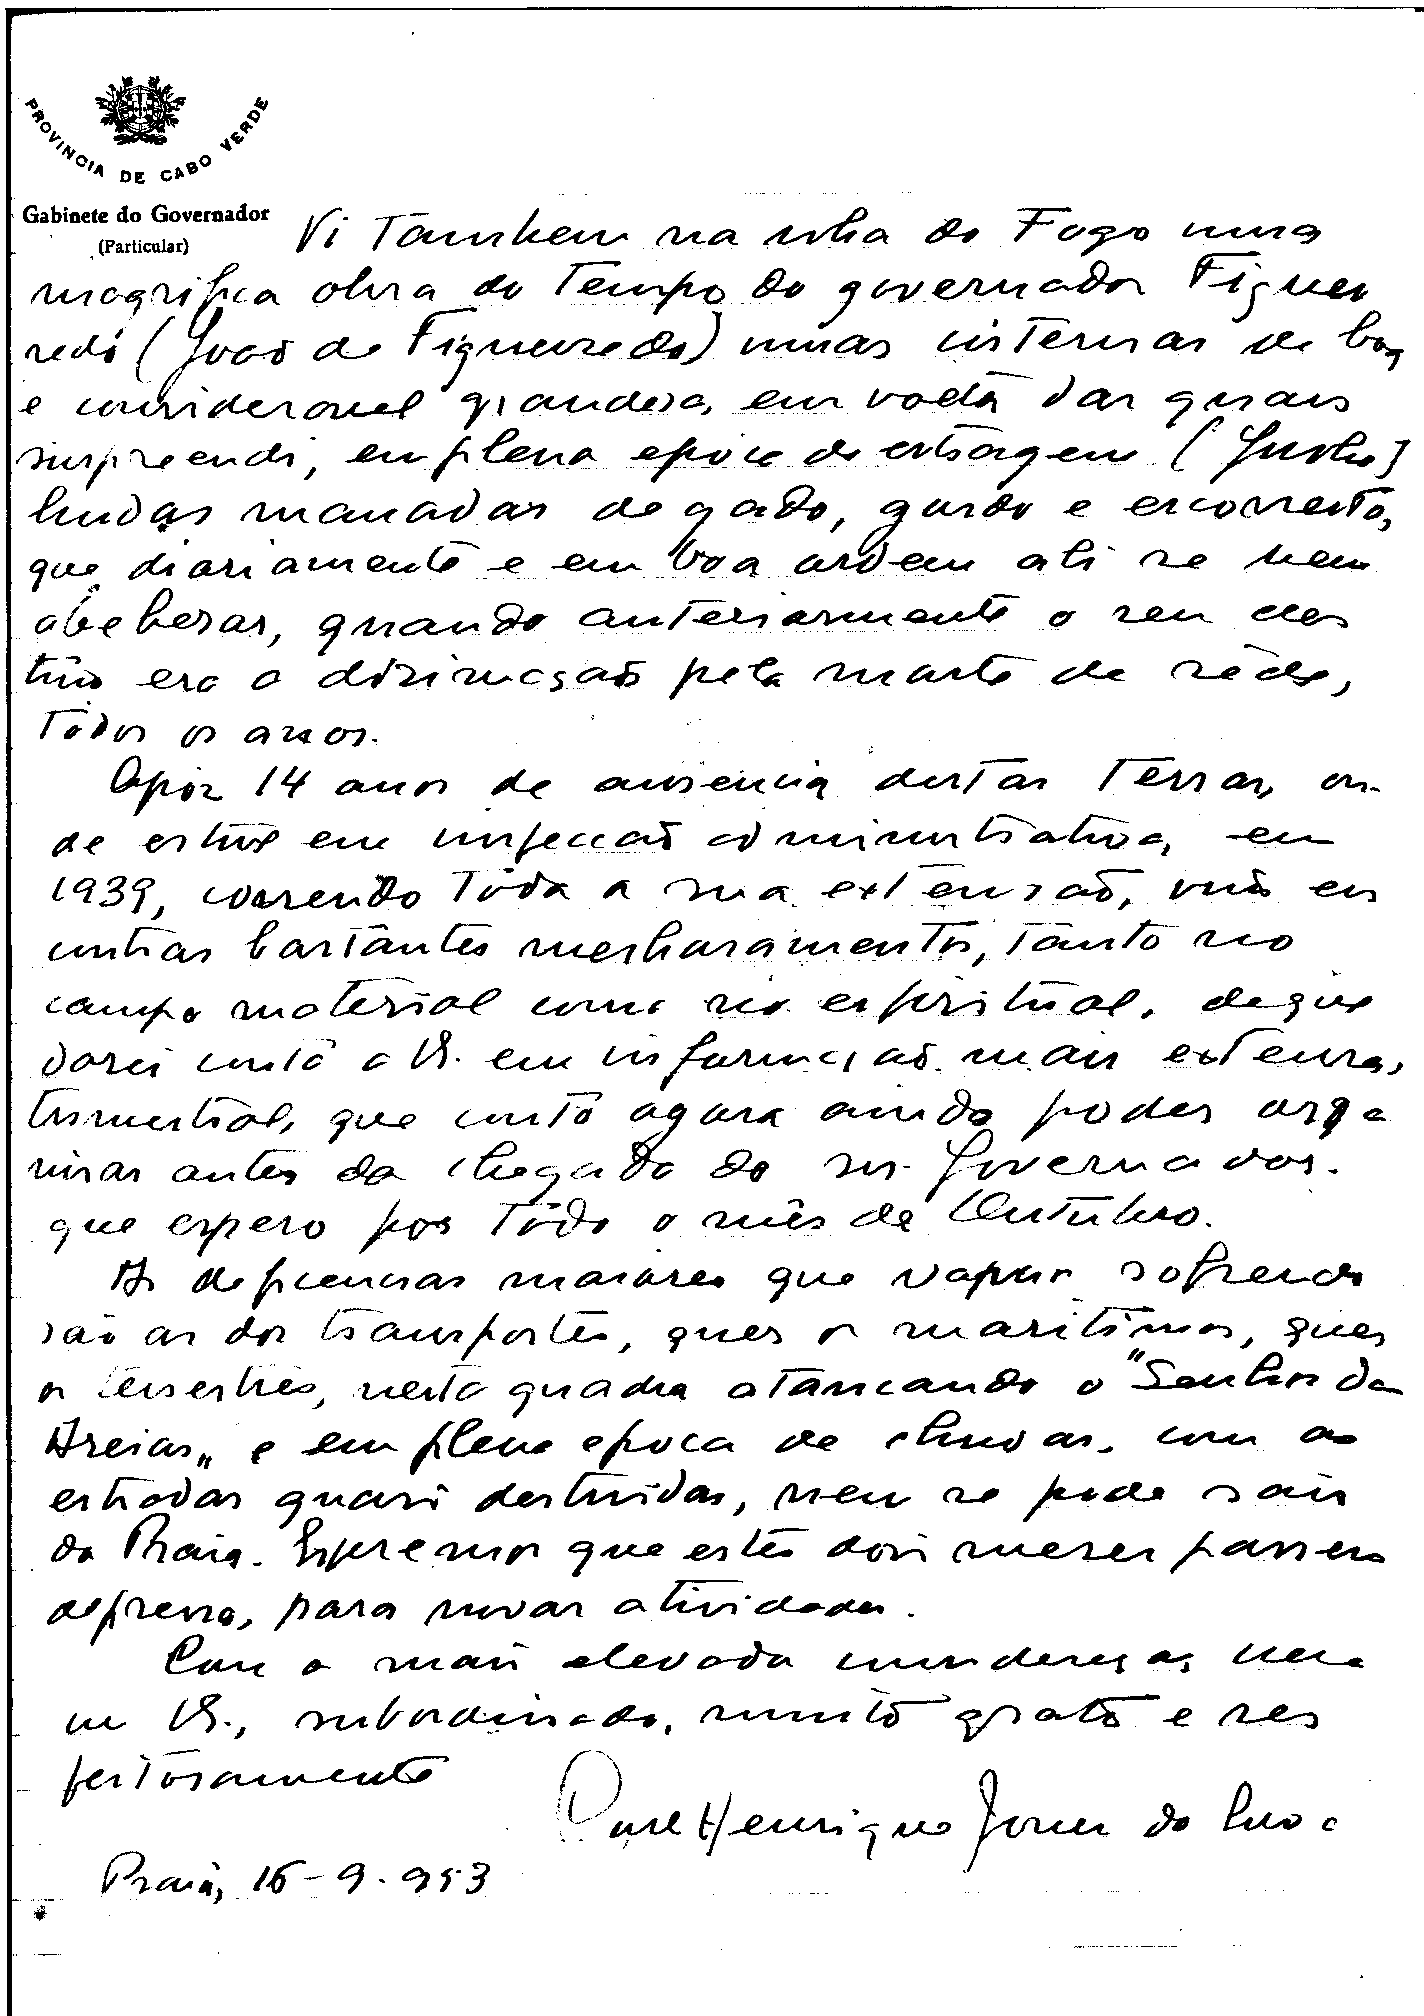 PROVINCIA DE CABO VERDE
Gabinete do Governador
(Particular)
Vi tambem na ilha do Fogo uma
magnifica obra do tempo do governador Figuei
redo (João de Figueiredo) umas cisternas de boa
e consideravel grandesa, em roda das quais
surpreendi, em plena epoca de estiagem (Junho)
lindas manadas de gado, gordo e escorreito,
que diariamente e em boa ordem ali se vem
abeberar, quando anteriormente o seu des
tino era a dizimação pela morte de sêde,
todos os anos.
Apoz 14 anos de ausencia destas terras, on
de estive em inspecção administrativa, em
1939, correndo tôda a sua extensão, vim en
contrar bastantes melhoramentos, tanto no
campo material como no espiritual, de que
darei conta a V. em informação mais extensa,
trimestral, que conto agora ainda poder orga
nisar antes da chegada do sr. Governador.
que espero por todo o mês de Outubro.
As deficiencias maiores que vamos sofrendo
são as dos transportes, quer os maritimos, quer
os terrestres, nesta quadra o "Senhor das
Areias" e em plena epoca de chuvas, com as
estradas quasi destruidas, nem se pode sair
da Praia. Esperemos que estes dois meses passem
depressa, para novas atividades.
Com a mais elevada consideração,
V., subordinado, muito grato e res
peitosamente
Henrique do
Praia, 16-9-953